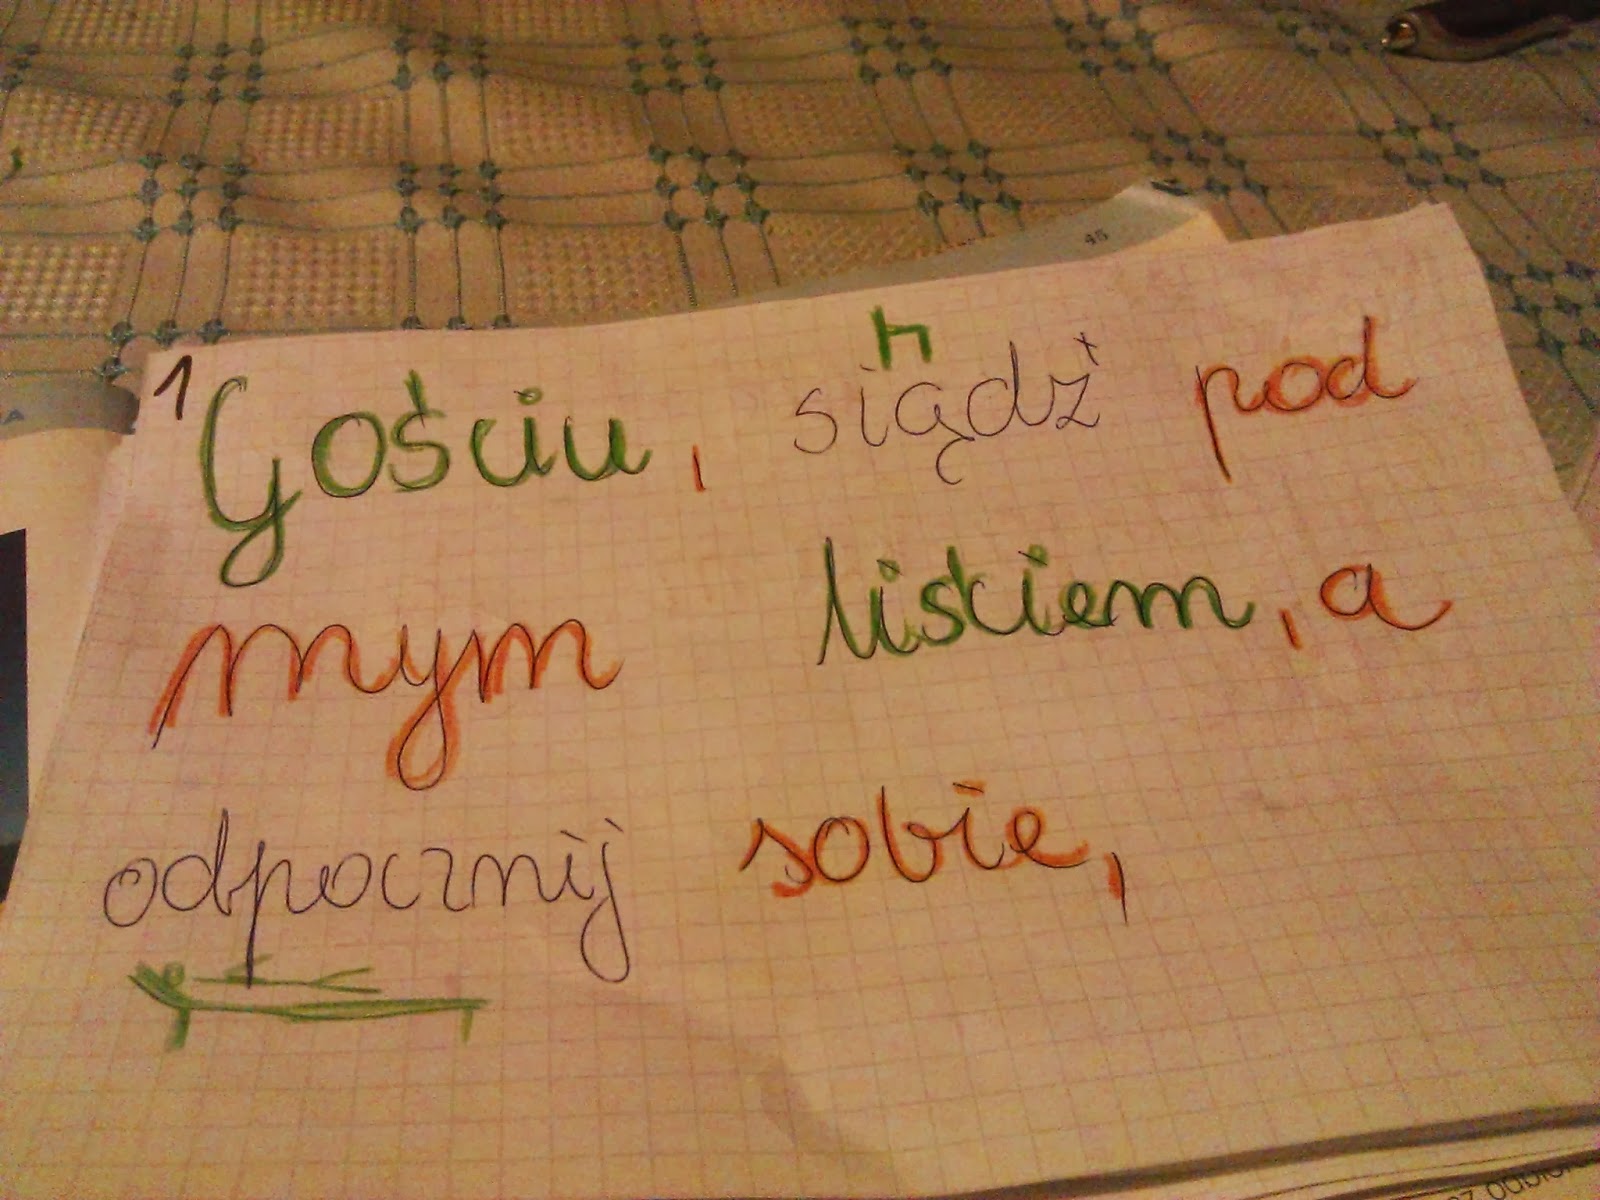 45
1 Gościu, siądź pod
mym liściem, a
odpocznij sobie,